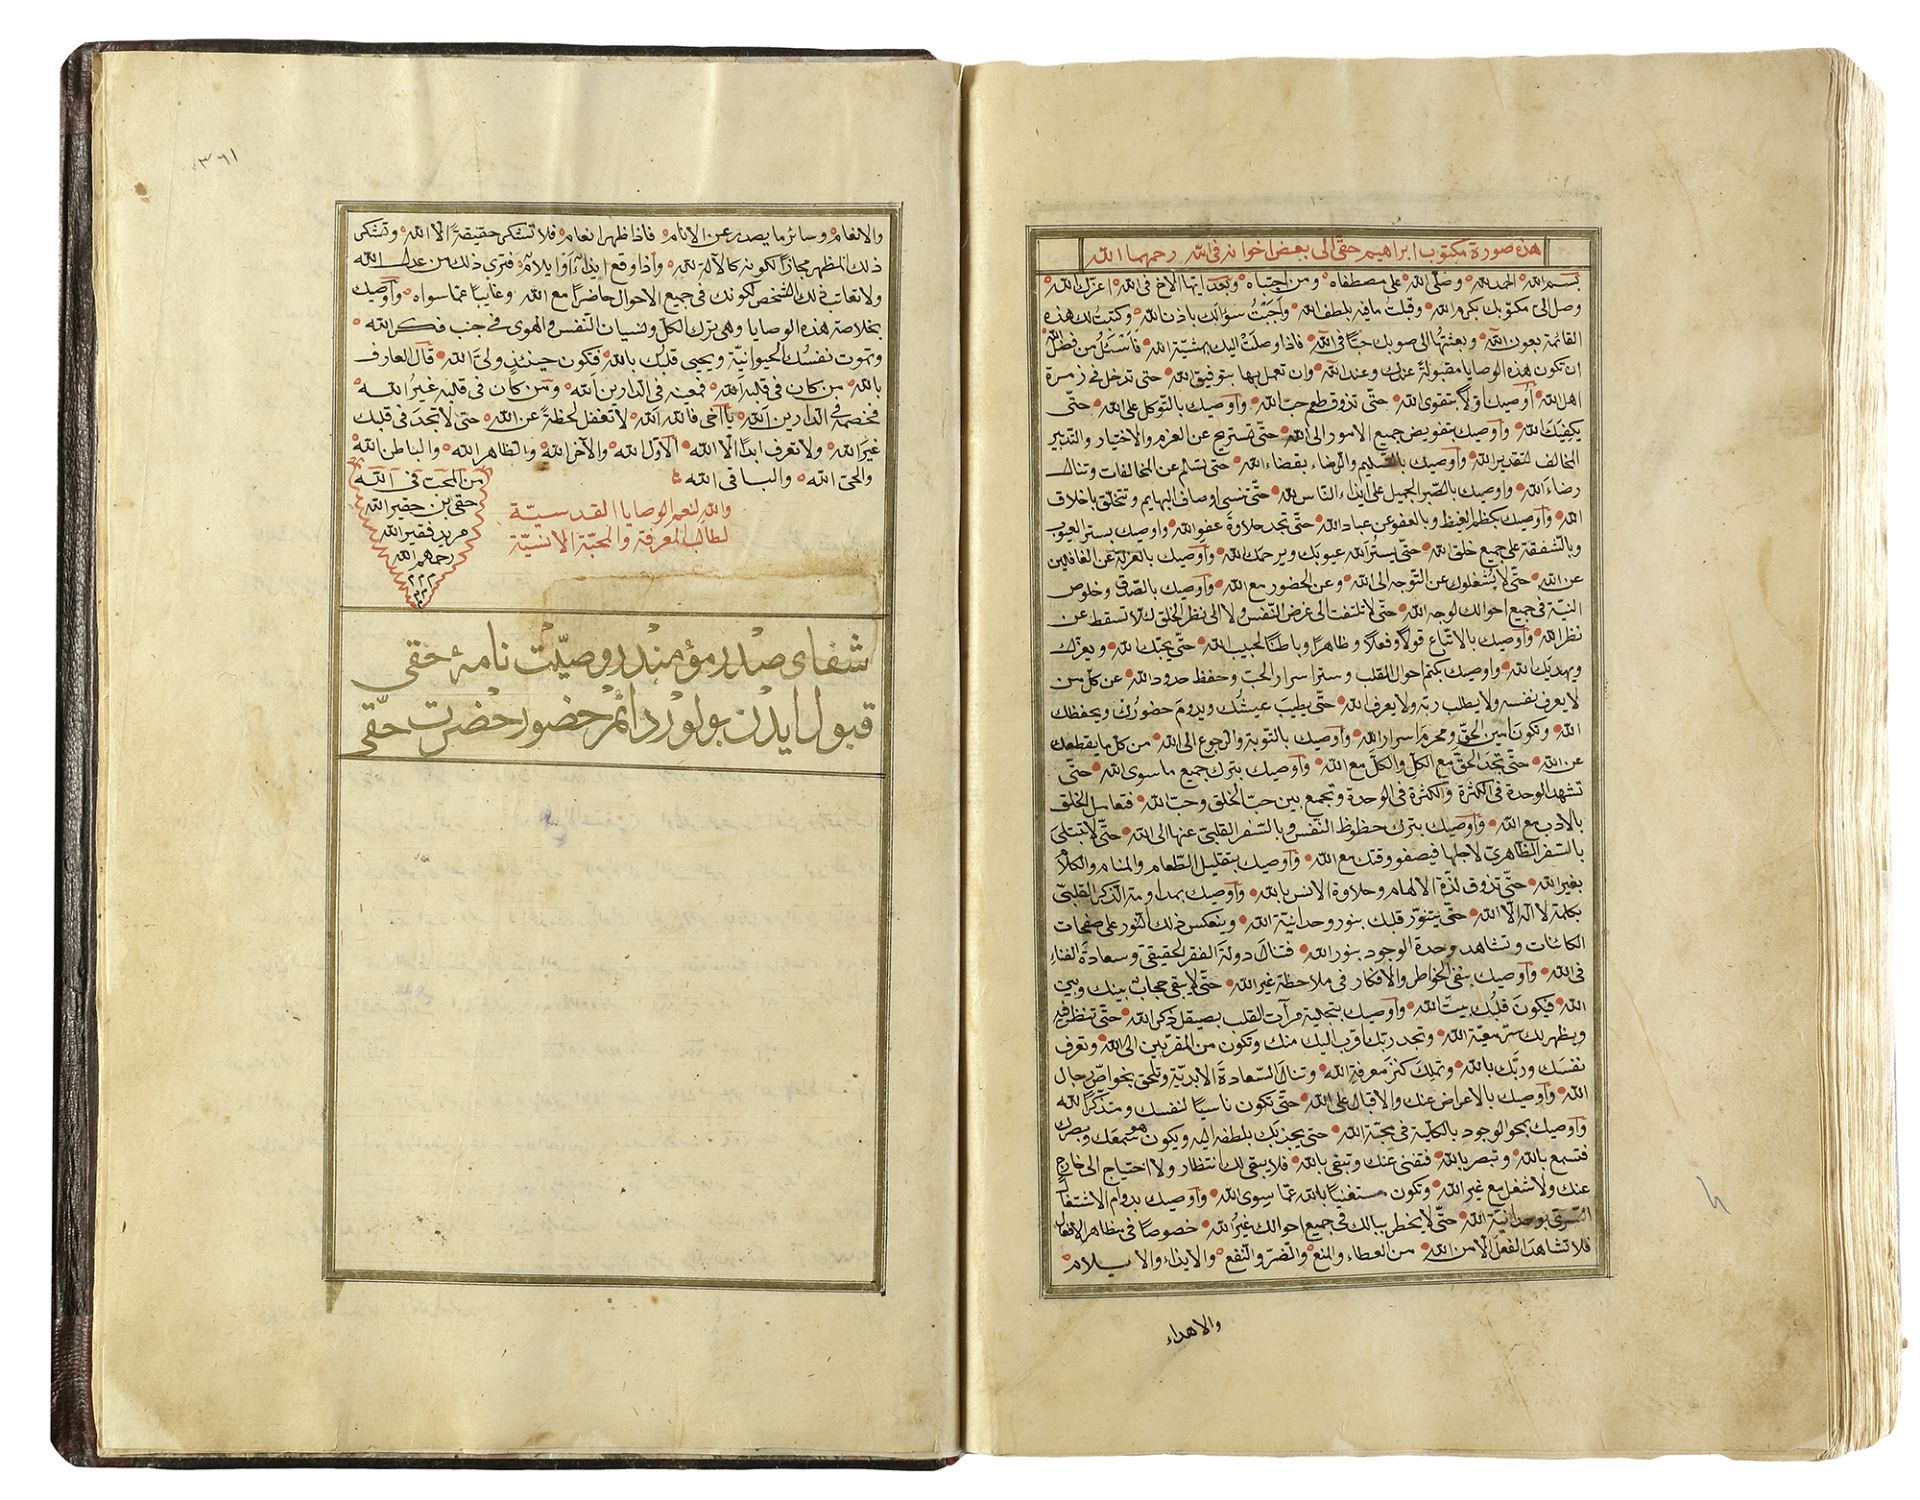 هذه صورة مكتوب ابراهيم حقى الى بعض اخوانه فى الله رحمهما الله
بسم الله الحمد لله وصلى الله على مصطفاه ومن اجتباه وبعد ايها الاخ فى الله اعزك الله
وصل الى مكتوبك بكرم الله وقبلت ما فيه بلطف الله واجبت سؤالك باذن الله وكتبت لك هذه
القائمة بعون الله وبعثتها الى صوبك حبا فى الله فاذا وصلت اليك بمشية الله فاسئل من فضل الله
ان تكون هذه الوصايا مقبولة عندك وعند الله وان تعمل بها بتوفيق الله حتى تدخل فى زمرة
اهل الله اوصيك اولا بتقوى الله حتى تذوق طعم حب الله واوصيك بالتوكل على الله حتى
يكفيك الله واوصيك بتفويض جميع الامور الى الله حتى تستريح عن العزم والاختيار والتدبير
المخالف لتقدير الله واوصيك بالتسليم والرضاء بقضاء الله حتى تسلم عن المخالفات وتنال
رضاء الله واوصيك بالصبر الجميل على ايذاء الناس لله حتى تنسى اوصاف البهايم وتتخلق باخلاق
الله واوصيك بكظم الغيظ وبالعفو عن عباد الله حتى تجد حلاوة عفو الله واوصيك بستر العيوب
وبالشفقة على جميع خلق الله حتى يستر الله عيوبك ويرحمك الله واوصيك بالعزلة عن الغافلين
عن الله حتى لا يشغلوك عن التوجه الى الله وعن الحضور مع الله واوصيك بالصدق وخلوص
النية فى جميع احوالك لوجه الله حتى لا تلتفت الى غرض النفس ولا الى نظر الخلق لئلا تسقط عن
نظر الله واوصيك بالاتباع قولا وفعلا وظاهرا وباطنا لحبيب الله حتى يحبك الله ويعزك
ويهديك الله واوصيك بكتم احوال القلب وستر اسرار الحب وحفظ حدود الله عن كل من
لا يعرف نفسه ولا يطلب ربه ولا يعرف الله حتى يطيب عيشك ويدوم حضورك ويحفظك
الله وتكون امين الحق ومحرم اسرار الله واوصيك بالتوبة والرجوع الى الله من كل ما يقطعك
عن الله حتى تجد الحق مع الكل والكل مع الله واوصيك بترك جميع ما سوى الله حتى
تشهد الوحدة فى الكثرة والكثرة فى الوحدة وتجمع بين حب الخلق وحب الله فتعامل الخلق
بالادب مع الله واوصيك بترك حظوظ النفس وبالسفر القلبى عنها الى الله حتى لا تبتلى
بالسفر الظاهرى لاجلها فيصفو وقتك مع الله واوصيك بتقليل الطعام والمنام والكلام
بغير الله حتى تذوق لذة الالهام وحلاوة الانس بالله واوصيك بمداومة الذكر القلبى
بكلمة لا اله الا الله حتى يتنور قلبك بنور وحدانية الله وينعكس ذلك النور على صفحات
الكائنات وتشاهد وحدة الوجود بنور الله فتنال دولة الفقر الحقيقى وسعادة الفناء
فى الله واوصيك بنفى الخواطر والافكار فى ملاحظة غير الله حتى لا يبقى حجاب بينك وبين
الله فيكون قلبك بيت الله واوصيك بتجلية مرآت القلب بصيقل ذكر الله حتى تنظر فيه
ويظهر لك سر معية الله وتجد ربك اقرب اليك منك وتكون من المقربين الى الله وتعرف
نفسك وربك بالله وتملك كنز معرفة الله وتنال السعادة الابدية وتلحق بخواص رجال
الله واوصيك بالاعراض عنك والاقبال على الله حتى تكون ناسيا لنفسك ومتذكرا لله
واوصيك بمحو الوجود بالكلية فى محبة الله حتى يجذبك بلطفه اليه ويكون هو سمعك وبصرك
فتسمع بالله وتبصر بالله فتفنى عنك وتبقى بالله فلا يبقى لك انتظار ولا احتياج الى خارج
عنك ولا شغل مع غير الله وتكون مستغنيا بالله عما سوى الله واوصيك بدوام الاشتغال
السرى بوحدانية الله حتى لا يخطر ببالك فى جميع احوالك غير الله خصوصا فى مظاهر الافعال
فلا تشاهد الفعل الا من الله من العطاء والمنع والضر والنفع والايذاء والايلام
والاهداء
٣٦١
والانعام وسائر ما يصدر عن الانام فاذا ظهر انعام فلا تشكر حقيقة الا الله وتشكر
ذلك المظهر مجازا لكونه كالآلة لله واذا وقع ايذاء او ايلام فترى ذلك من عدل الله
ولا تعاتب ذلك الشخص لكونك فى جميع الاحوال حاضرا مع الله وغايبا عما سواه واوصيك
بخلاصة هذه الوصايا وهى ترك الكل ونسيان النفس والهوى فى جنب ذكر الله
وتموت نفسك الحيوانية ويحيى قلبك بالله فتكون حينئذ ولى الله قال العارف
بالله من كان فى قلبه الله فمعينه فى الدارين الله ومن كان فى قلبه غير الله
فخصمه فى الدارين الله يا اخى فالله الله لا تغفل لحظة عن الله حتى لا تجد فى قلبك
غير الله ولا تعرف ابدا الا الله الاول الله والآخر الله والظاهر الله والباطن الله
والحى الله والباقى الله
من المحب فى الله
حقى بن حقير الله
مريد فقير الله
رحمهم الله
والله لنعم الوصايا القدسية
لطالب المعرفة والمحبة الانسية
شفاى صدر مؤمندر وصيت نامهٔ حقى
قبول ايدن بولور دائم حضور حضرت حقى